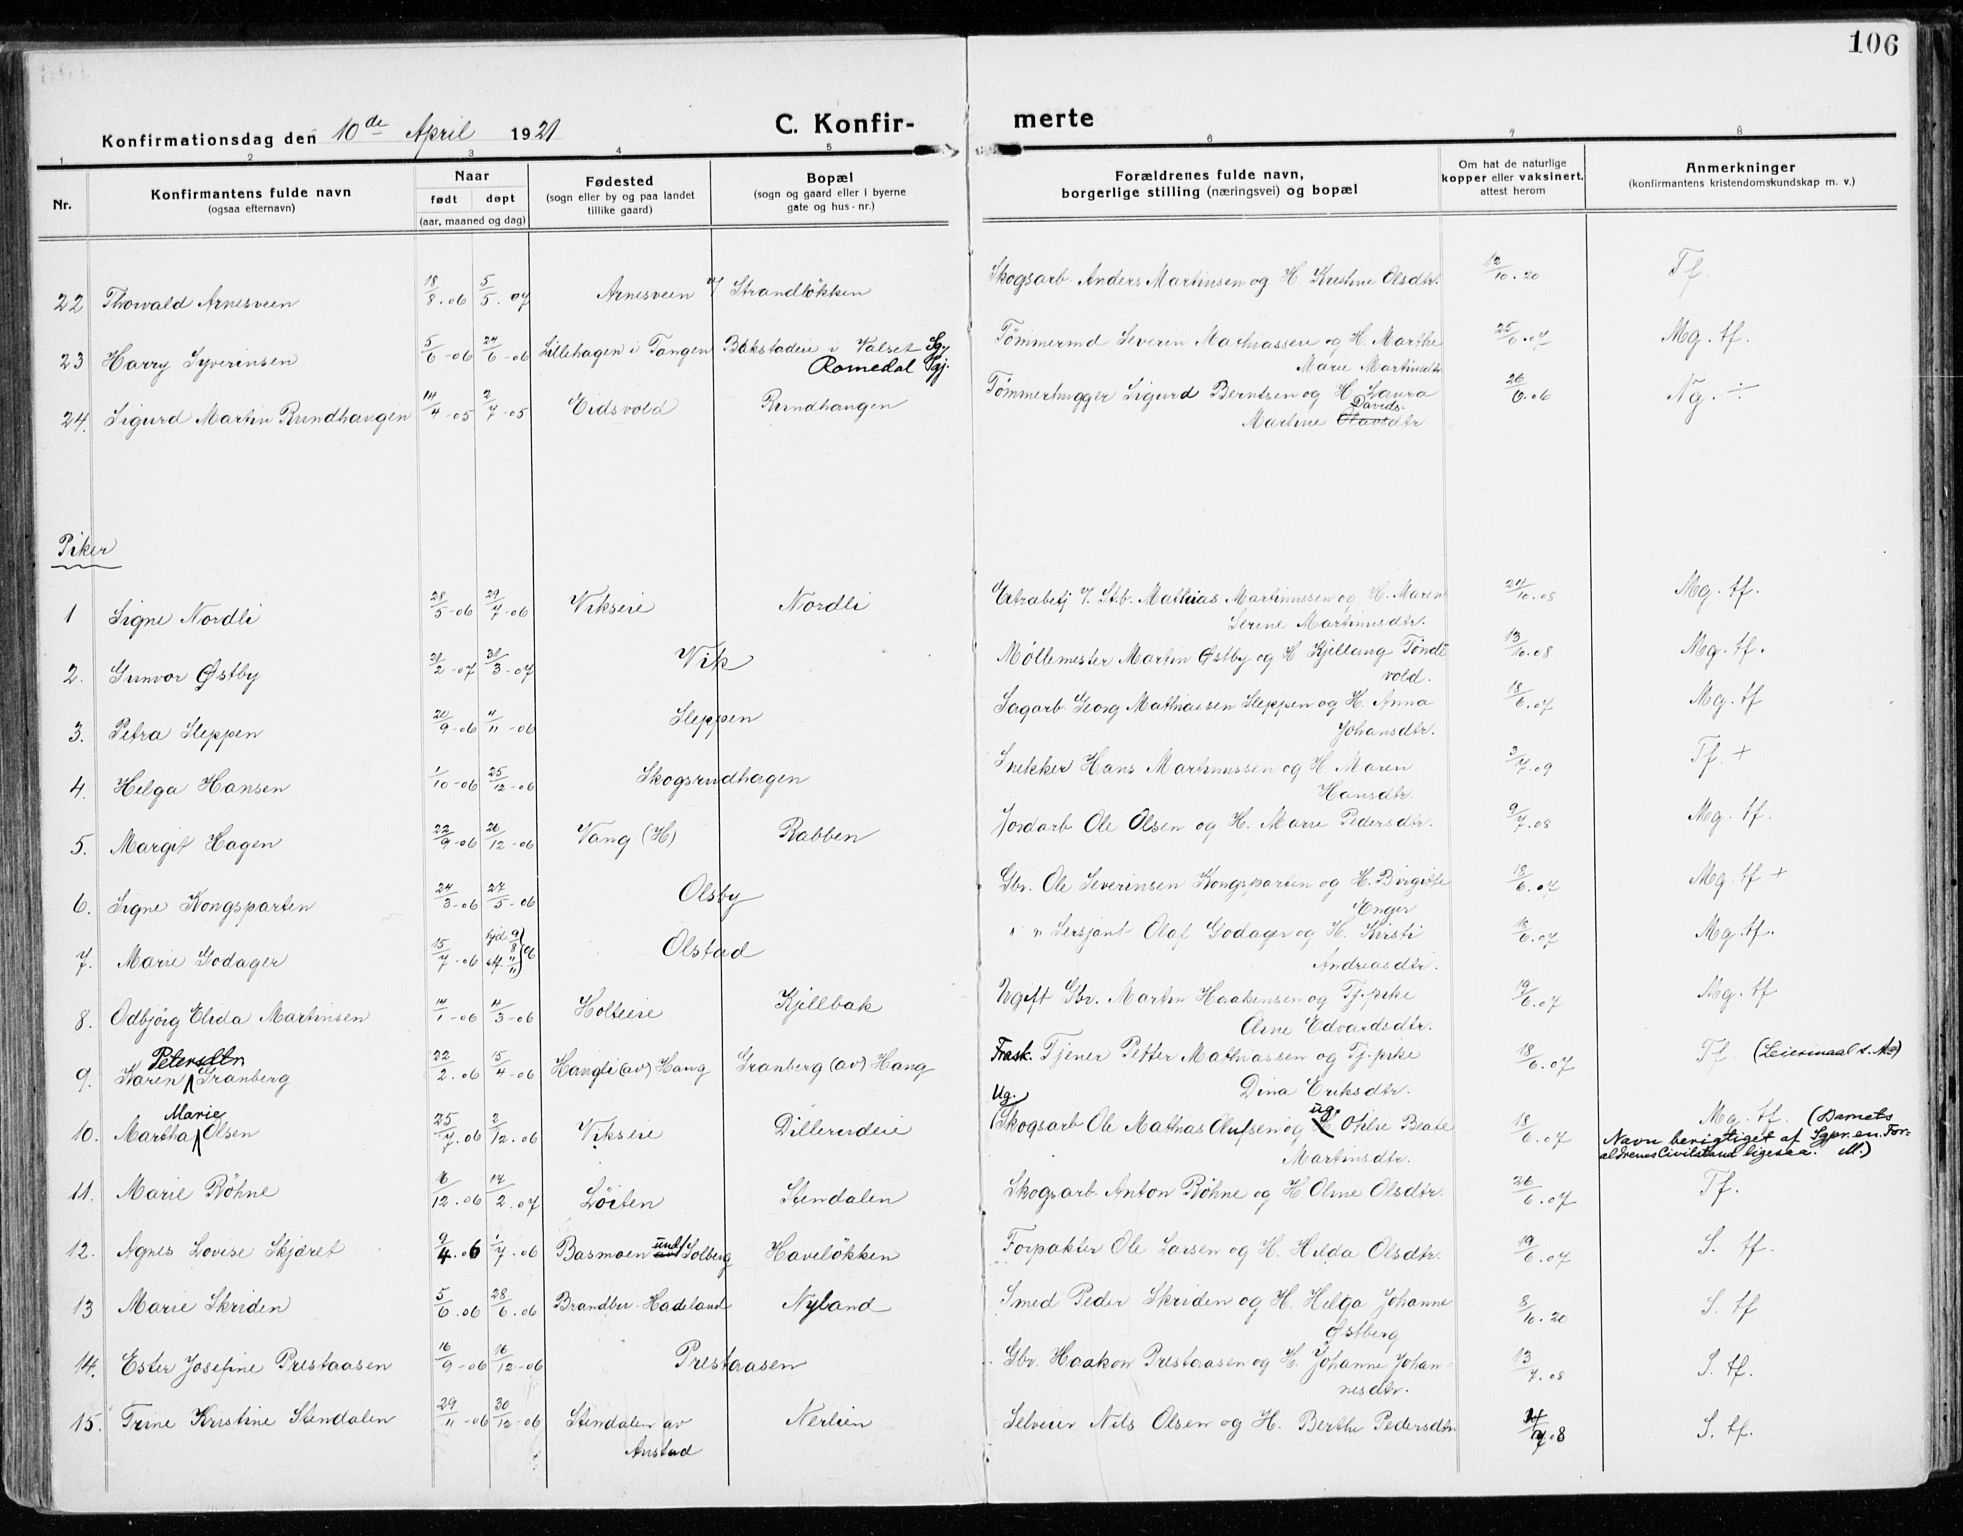 106
Konfirmationsdag den 10de April 1921
C. Konfir- merte
1 2 3 4 5 6 7 8
Nr.
Konfirmantens fulde navn
(ogsaa efternavn)
Naar
født døpt
(aar, maaned og dag)
Fødested
(sogn eller by og paa landet
tillike gaard)
Bopæl
(sogn og gaard eller i byerne
gate og hus-nr.)
Forældrenes fulde navn,
borgerlige stilling (næringsvei) og bopæl
Om hat de naturlige
kopper eller vaksinert,
attest herom
Anmerkninger
(konfirmantens kristendomskundskap m. v.)
22 Thorvald Arnesveen 18/8.06 5/5.07 Arnesveen Strandløkken Skogsarb. Anders Martinsen og H. Kristine Olsdtr. 12/10.20 Tf.
23 Harry Syverinsen 5/6-06 24/6-06 Lillehagen i Tangen Bakstadeie i Valset Sgj. Tømmermd Severin Mathiassen og H. Marthe 25/6.07 Mg. tf.
Romedal Sgj. Marie Martinsdtr.
24. Sigurd Martin Rundhaugen 14/4-05 2/7-05 Eidsvold Rundhaugen Tømmerhugger Sigurd Berntsen og H. Laura 26/6.06 Ng. ÷
Davids-
Martine Olavsdtr.
Piker
1 Signe Nordli 28/5-06 29/7-06 Vikseie Nordli Extrabetj. V. St.b. Mathias Martinussen og H. Maren 24/10.08 Mg. tf.
Serine Martinusdtr.
2. Gunvor Østby 21/2-07 31/3-07 Vik Møllemester Martin Østby og H. Kjellaug Tønde 13/10.08 Mg. tf.
vold.
3. Petra Sleppen 20/9-06 4/11-06 Sleppen Sagarb. Georg Mathiesen Sleppen og H. Anna 18/6.07 Mg. tf
Johansdtr.
4. Helga Hansen 1/10-06 25/12-06 Skogsrudhagen Snekker Hans Martinussen og H. Maren 3/7.09 Tf. +
Hansdtr.
5. Margit Hagen 22/9-06 26/12-06 Vang (H) Rabben Jordarb. Ole Olsen og H. Marie Pedersdtr. 9/7.08 Mg. tf.
6. Signe Kongsparten 24/3-06 27/5-06 Olsby Gbr. Ole Severinsen Kongsparten og H. Birgitte 18/6.07 Mg. tf +
Enger
7. Marie Godager 15/7-06 hjd. 9/8 st. 4/11 06 Olstad " " Sersjant Olaf Godager og H. Kirsti Mg. tf.
Andreasdtr.
8. Odbjörg Elida Martinsen 14/1-06 4/3-06 Holteeie Kjellbak Ugift Gbr. Martin Haakensen og Tj.pike 19/6.07 Mg. tf
Oline Edvardsdtr.
Petersdtr.
9. Karen Granberg 22/2.06 15/4-06 Haugli (av) Haug Granberg (av) Haug Frask. Tjener Petter Mathiassen og Tj.pike 18/6.07 Tf. (Leiermaal
Dina Eriksdtr.
Marie Ug. ug.
10. Martha Olsen 25/7.06 2/12.06 Vikseie Dillerudeie (Skogsarb. Ole Mathias Olufsen og Otilie Beate 18/6.07 Mg. tf. (Barnets
Martinsdtr. Navn berigtiget af Sgpr. en. For-
ældrenes Civilstand ligesaa. M.)
11. Marie Røhne 6/12.06 14/2.07 Løiten Stendalen Skogsarb. Anton Røhne og H. Oline Olsdtr. 26/6.07 Tf.
12. Agnes Lovise Skjæret 9/4.06 1/7.06 Basmoen und. Solberg Haveløkken Forpakter Ole Larsen og H. Hilda Olsdtr. 19/6.07 S. tf.
13 Marie Skriden 5/6.06 28/6.06 Brandbu-Hadeland Nyland Smed Peder Skriden og H. Helga Johanne 8/10.20 S. tf.
Østberg
14. Ester Josefine Prestaasen 16/9-06 16/12-06 Prestaasen Gbr. Haakon Prestaasen og H. Johanne Johan- 13/7.08 S. tf.
nesdtr.
15. Trine Kristine Stendalen 29/11-06 30/12-06 Stendalen av Nerlien Selveier Nils Olsen og H. Berthe Pedersdtr. S. tf.
Anstad